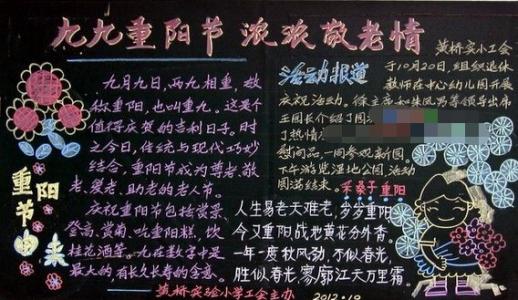 九九重阳节 浓浓敬老情
重阳节由来
九月九日，两九相重，故
称重阳，也叫重九。这是个
值得庆贺的吉利日子。时
之今日，传统与现代巧妙
结合，重阳节成为尊老、敬
老、爱老、助老的老人节。
庆祝重阳节包括赏景、
登高、赏菊、吃重阳糕、饮
桂花酒等。九在数字中是
最大的有长久长寿的含意。
黄桥实验小学工会主办
活动报道
黄桥实小工会
于10月20日，组织退休
教师在中心幼儿园开展
庆祝活动。徐主席
领导出席
王园长介绍了园
了热情
慰问品，一同参观新园
下午游览湿地公园 活动
圆满结束。
采桑子 重阳
人生易老天难老，岁岁重阳
今又重阳战地黄花分外香。
一年一度秋风劲，不似春光，
胜似春光，寥廓江天万里霜
2012.10